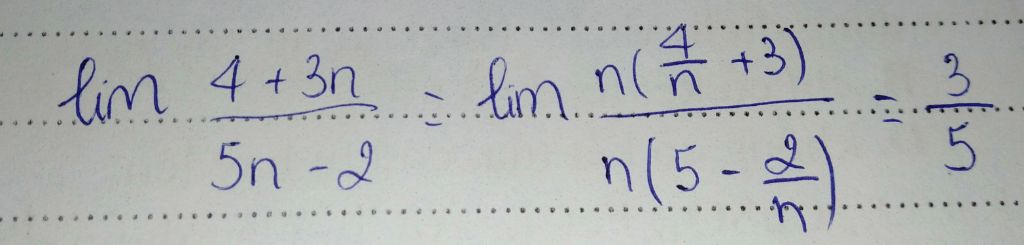 lim (4 + 3n)/(5n - 2) = lim (n(4/n + 3))/(n(5 - 2/n)) = 3/5